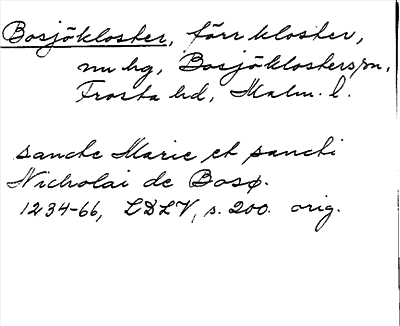 Bosjökloster, förr kloster,
nu hg, Bosjöklosters sn,
Frosta hd, Malm. l.
sancte Marie et sancti
Nicholai de Bosø.
1234-66, LDLV, s. 200. orig.